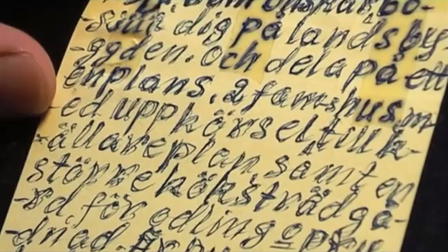 som önskar bo-
sätta dig på landsby-
gden. Och dela på ett
enplans, 2 famshus, m-
ed uppkörsel till k-
ällareplan, samt en
större köksträdgå-
rd, för odling, opps-
dnad